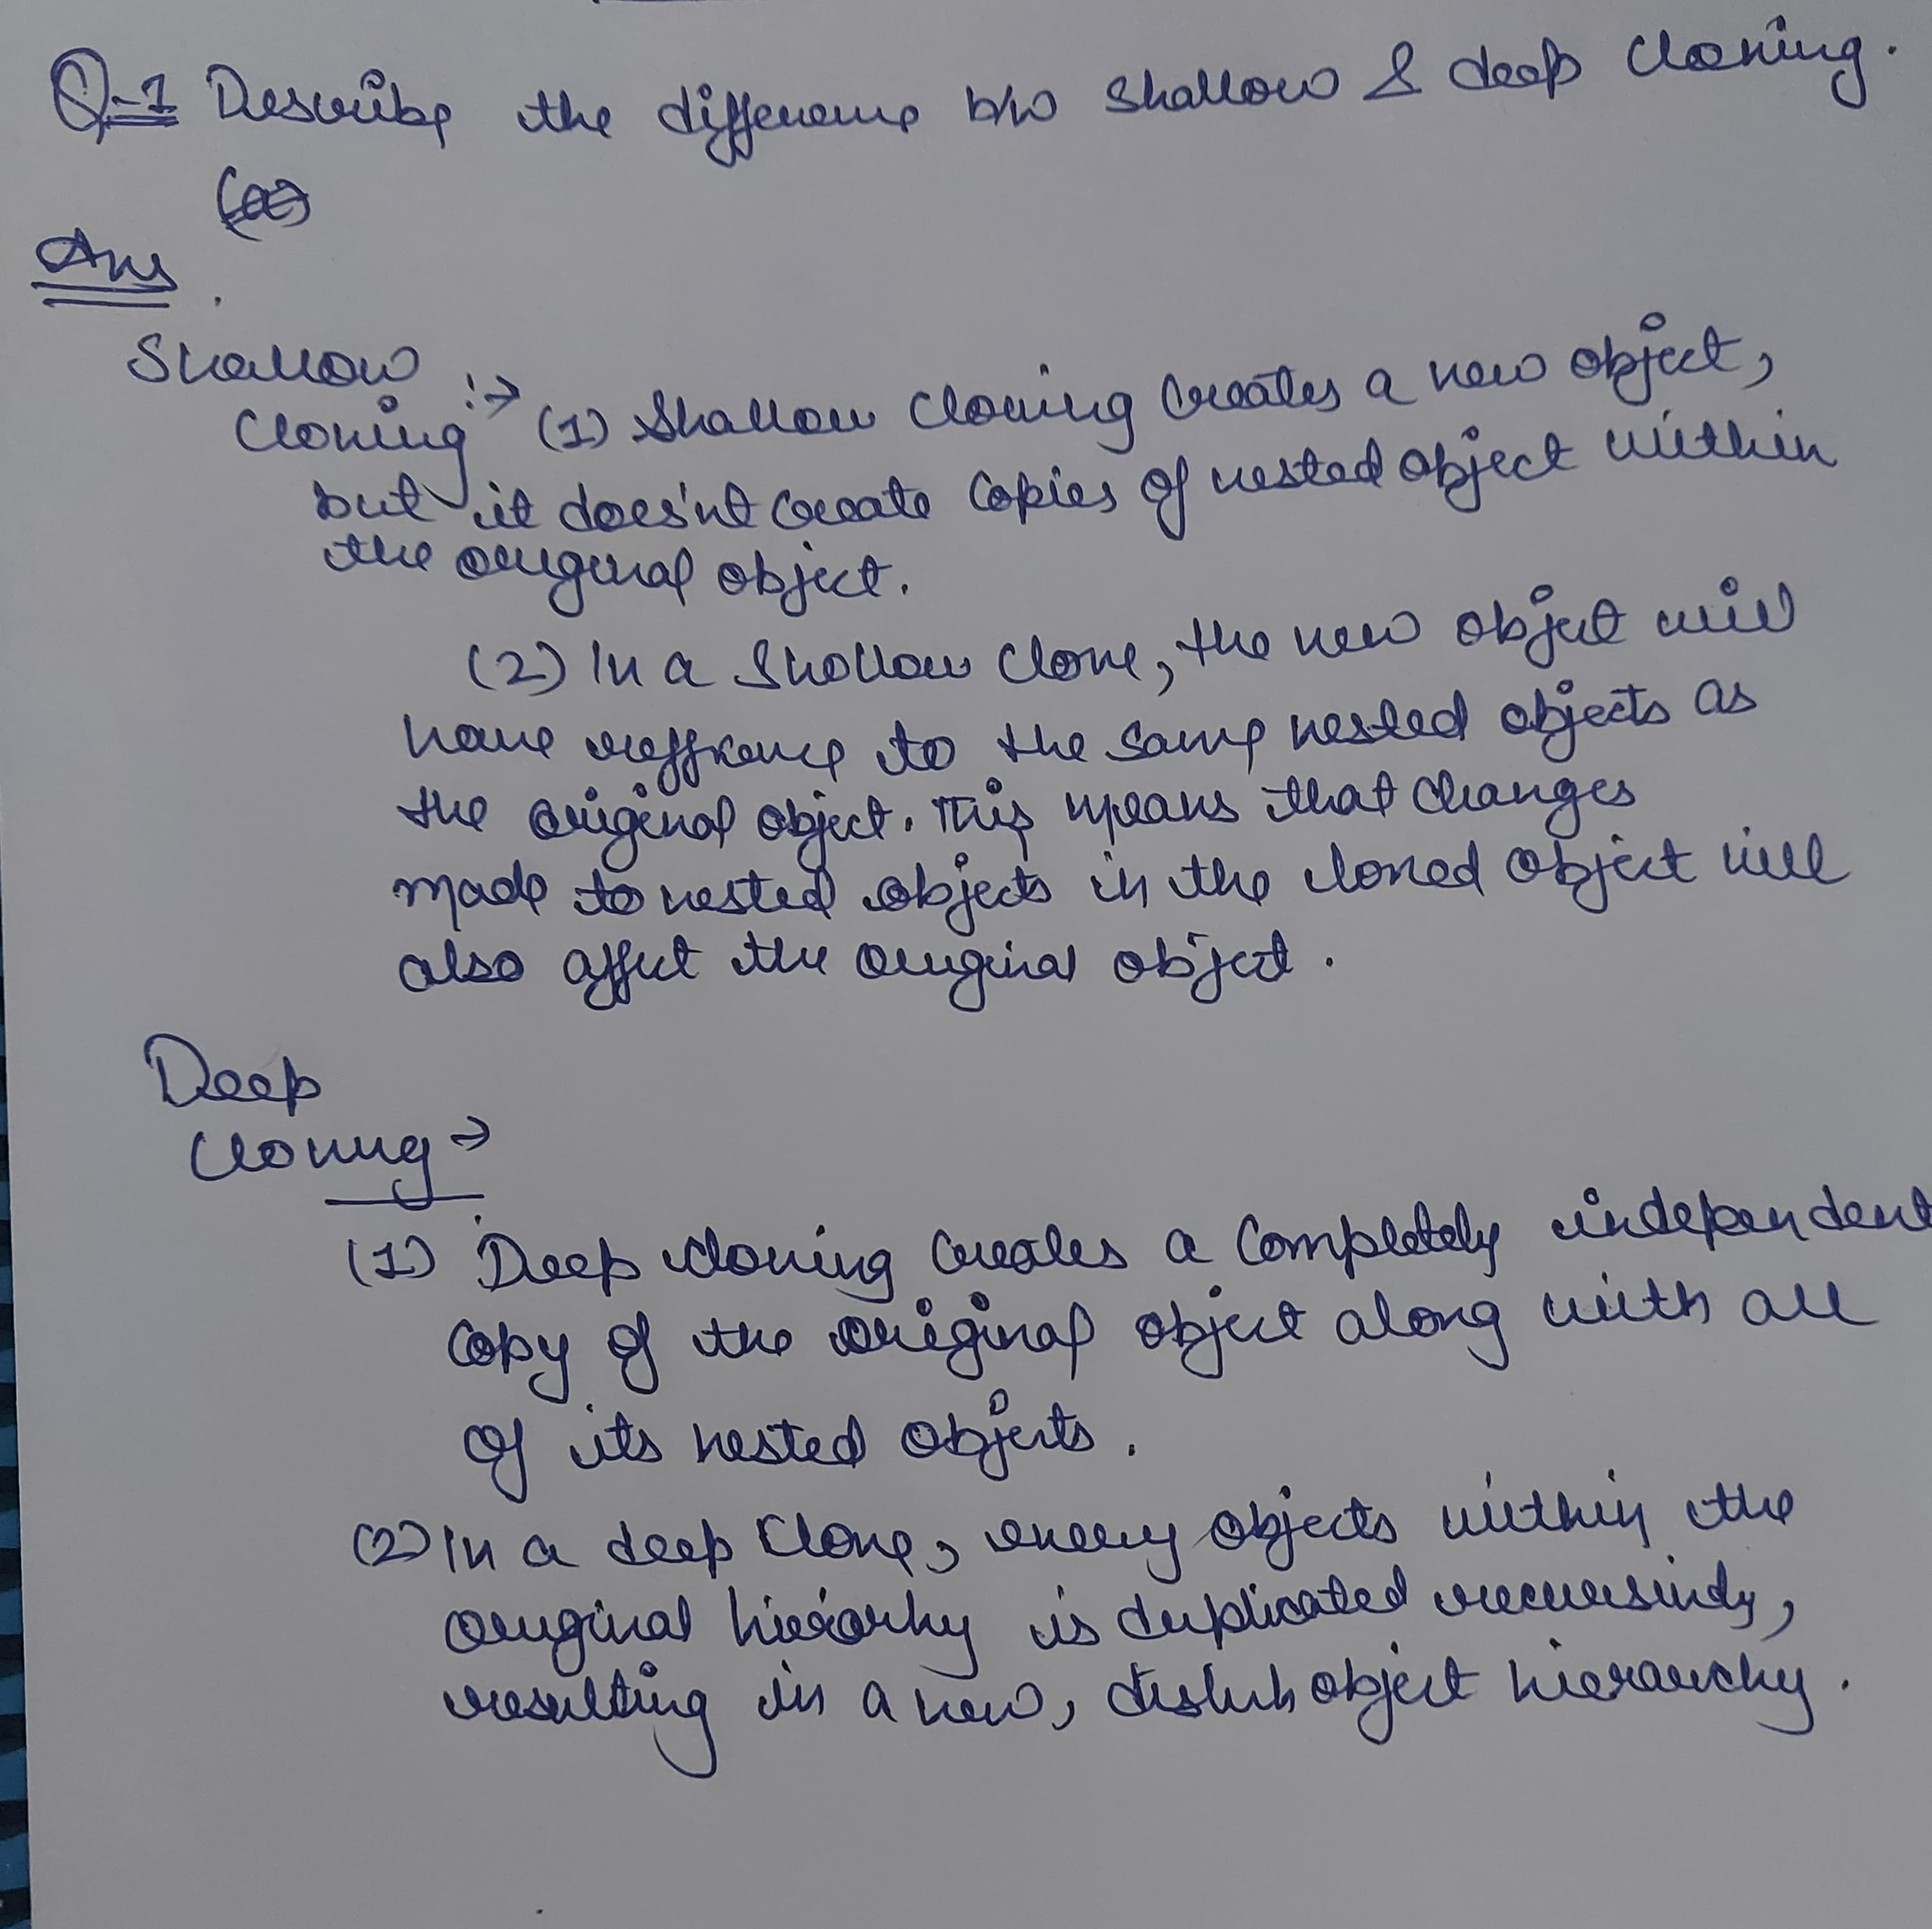 Q-1 Describe the difference b/w shallow & deep cloning.
Ans
Shallow
Cloning :→ (1) Shallow cloning creates a new object,
but it does'nt create copies of nested object within
the original object.
(2) In a Shollow clone, the new object will
have reffrence to the same nested objects as
the original object. This means that changes
made to nested objects in the cloned object will
also affect the original object.
Deep
Cloning →
(1) Deep cloning creates a completely independent
copy of the original object along with all
of its nested objects.
(2) In a deep clone, every objects within the
original hierarhy is duplicated recursively,
resulting in a new, object hierarchy.